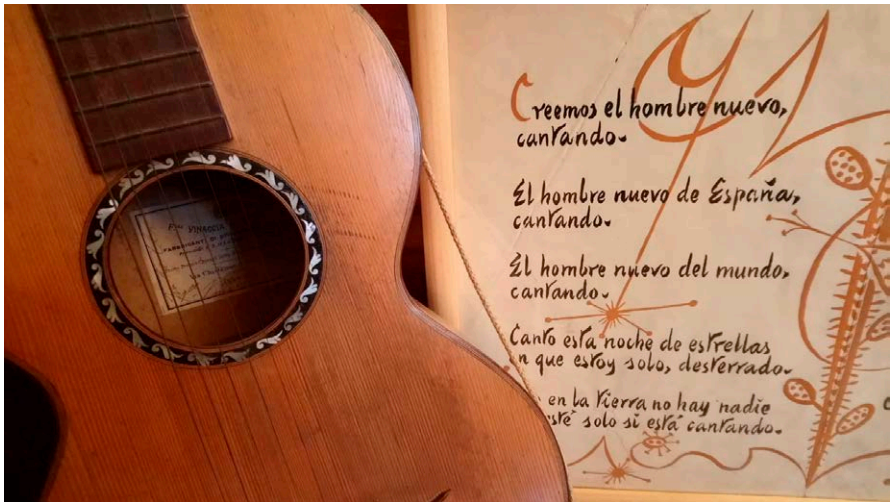 VINACCIA
Creemos el hombre nuevo,
cantando.
El hombre nuevo de España,
cantando.
El hombre nuevo del mundo,
cantando.
Canto esta noche de estrellas
n que estoy solo, desterrado.
en la tierra no hay nadie
sté solo si está cantando.